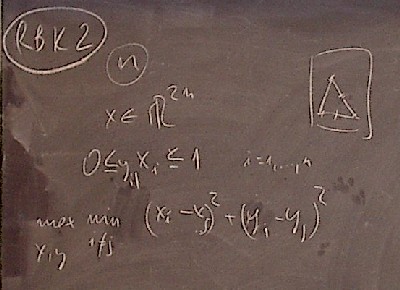 RBK2
n
x ∈ ℝ^{2n}
0 ≤ y_i, x_i ≤ 1 i=1,...,n
max_{x,y} min_{i≠j} (x_i - x_j)^2 + (y_i - y_j)^2